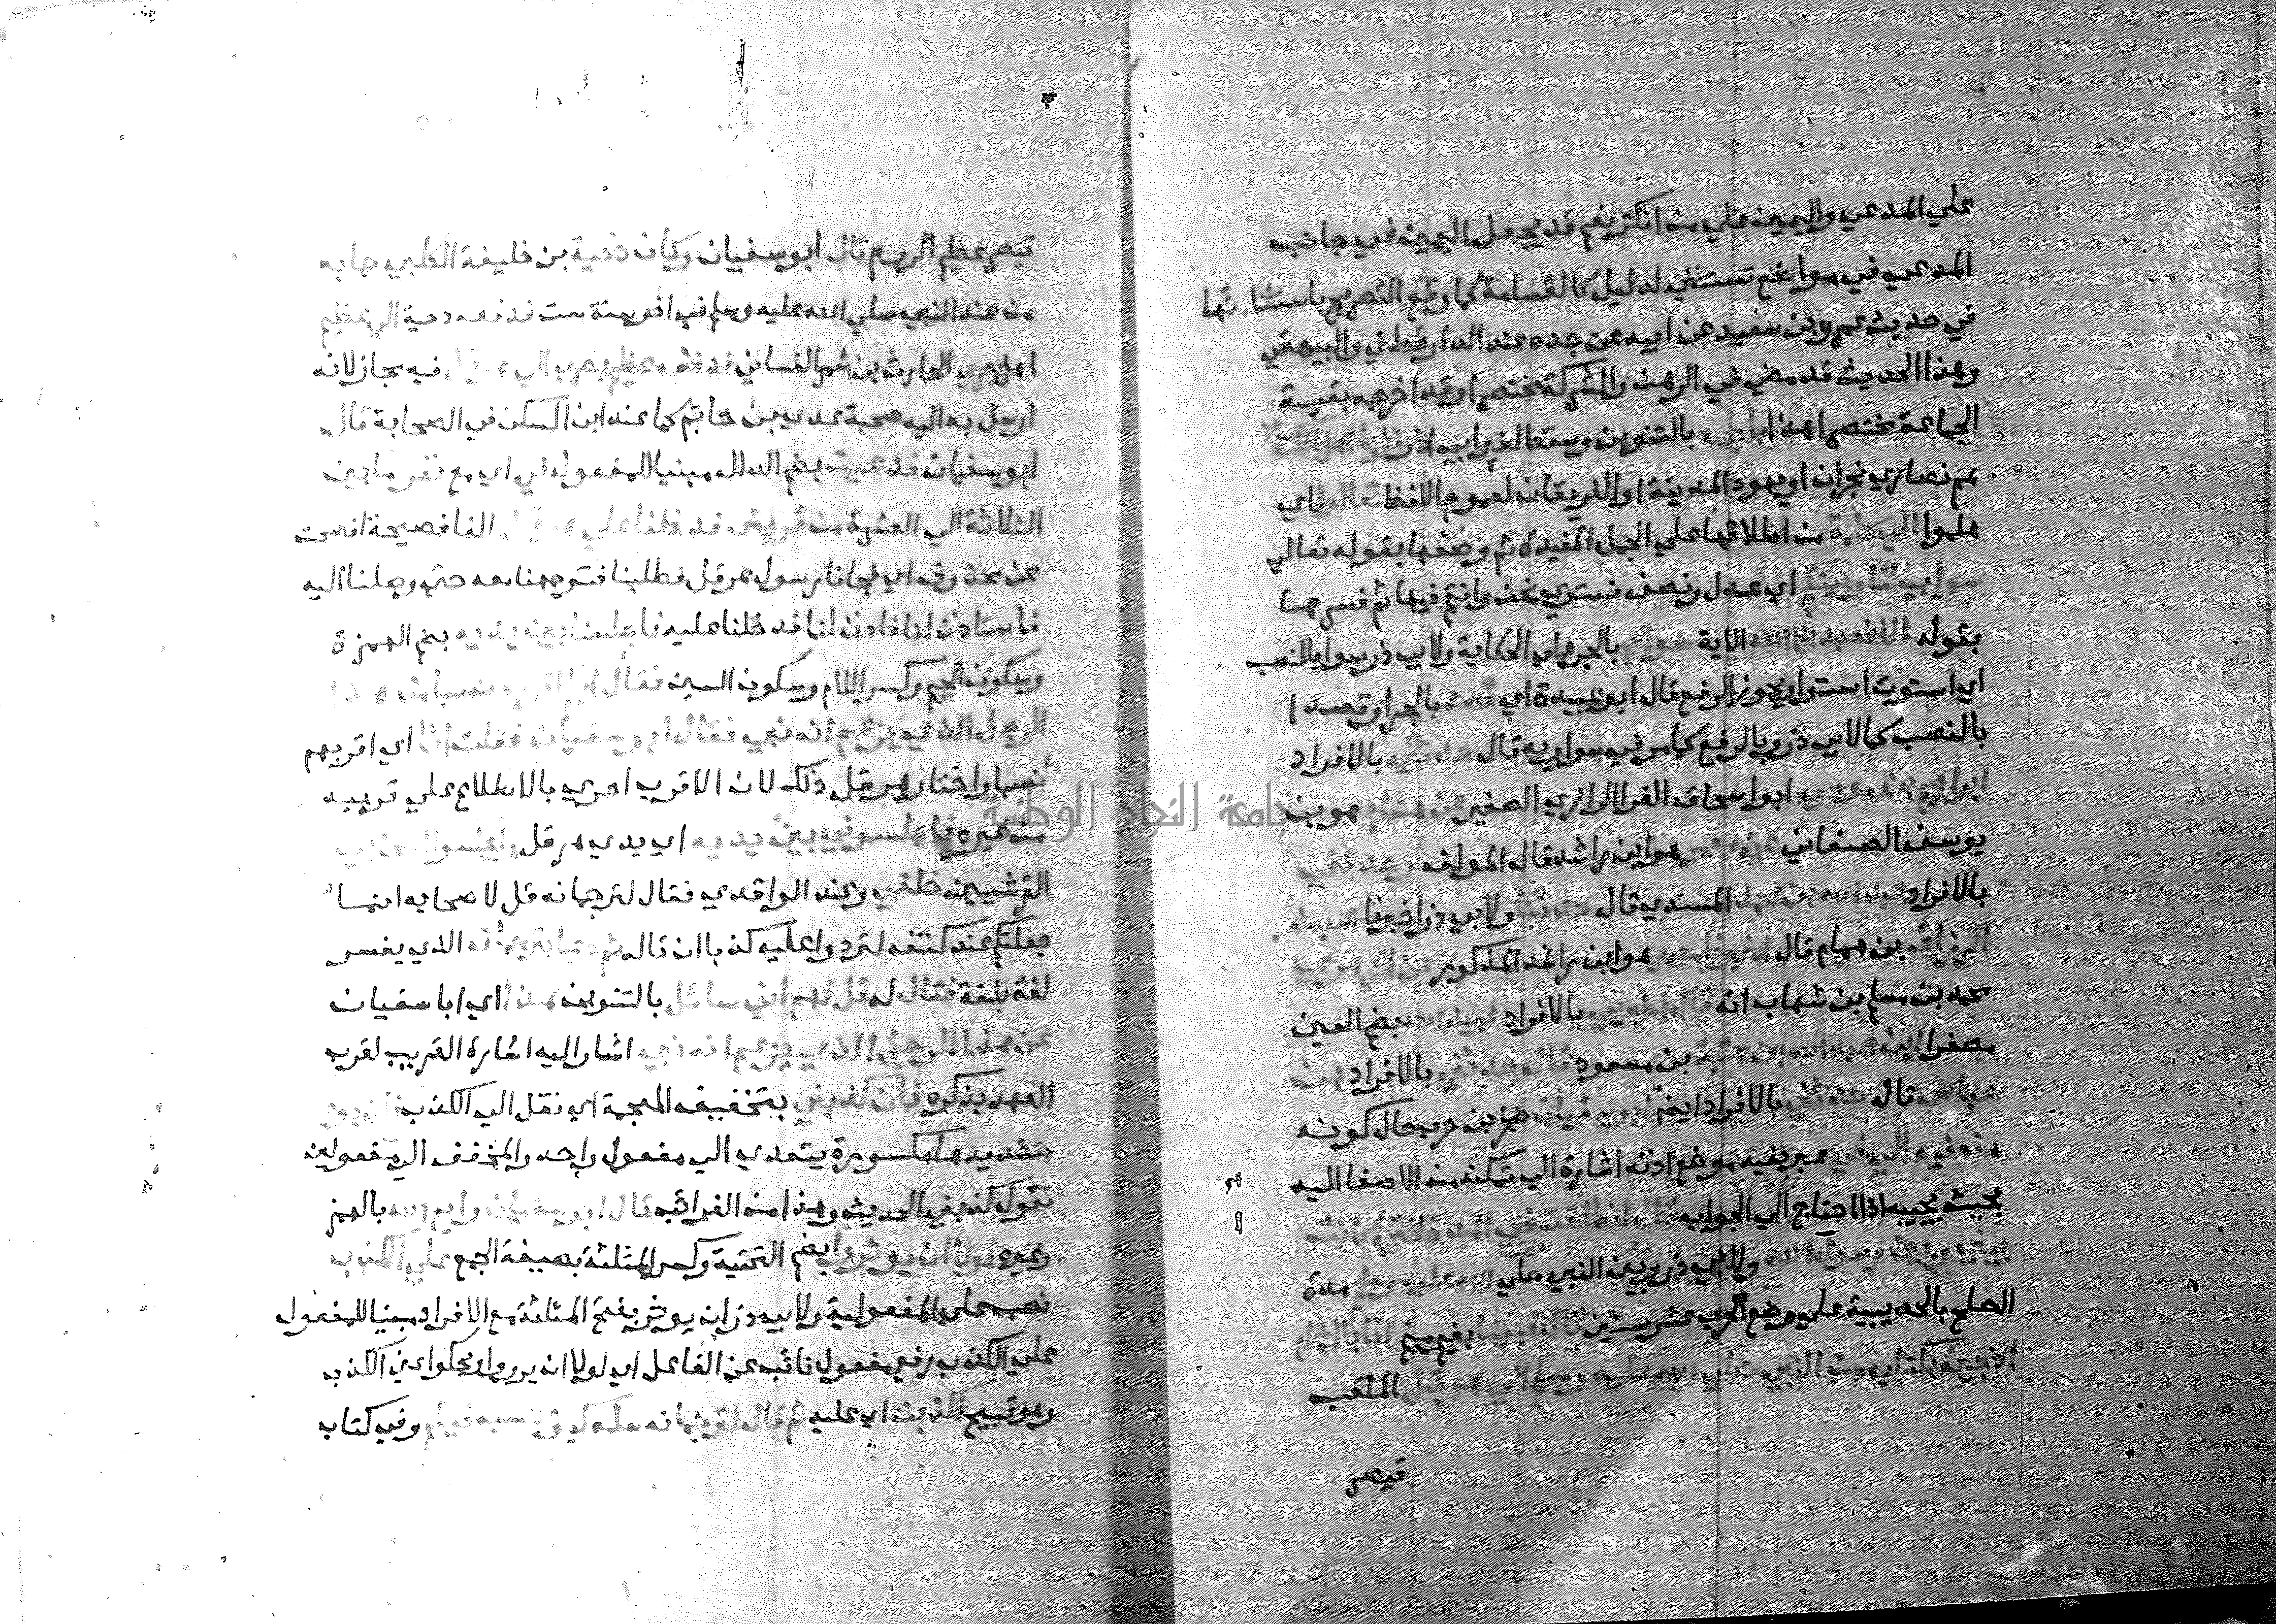 علي المدعي واليمين علي من انكر نعم قد يجعل اليمين في جانب
المدعي في مواضع تستثني لدليل كالقسامة كما وقع التصريح باستثنائها
في حديث عمرو بن سعيد عن ابيه عن جده عند الدارقطني والبيهقي
وهذا الحديث قد مضي في الرهن والشركة مختصرا وقد اخرجه بقية
الجماعة مختصرا هذا باب بالتنوين وسقط لغير ابي ذر قل يا اهل الكتاب
هم نصاري نجران او يهود المدينة او الفريقان لعموم اللفظ تعالوا اي
هلموا الي كلمة من اطلاقها علي الجمل المفيدة ثم وصفها بقوله تعالي
سوا بيننا وبينكم اي عدل ونصف نستوي نحن وانتم فيها ثم فسرها
بقوله الا نعبد الا الله الاية سواء بالجر علي الحكاية ولابي ذر سوا بالنصب
اي استوت استوا ويجوز الرفع قال ابو عبيدة اي قصد بالجر او قصدا
بالنصب كما لابي ذر وبالرفع كما مر في سوا وبه قال حدثني بالافراد
ابراهيم بن موسي ابو اسحاق الفرا الرازي الصغير عن هشام هو بن
يوسف الصنعاني عن معمر هو ابن راشد قال المولف وحدثني
بالافراد عبد الله بن محمد المسندي قال حدثنا ولابي ذر اخبرنا عبد
الرزاق بن همام قال اخبرنا معمر هو ابن راشد المذكور عن الزهري
محمد بن مسلم بن شهاب انه قال اخبرني بالافراد عبيد الله بضم العين
مصغرا ابن عبد الله بن عتبة بن مسعود قال حدثني بالافراد بن
عباس قال حدثني بالافراد ايضا ابو سفيان صخر بن حرب حال كونه
من فيه الي في عبر بفيه موضع اذنه اشارة الي تمكنه من الاصغا اليه
بحيث يجيبه اذا احتاج الي الجواب قال انطلقت في المدة التي كانت
بيني وبين رسول الله ولابي ذر وبين النبي صلي الله عليه وسلم مدة
الصلح بالحديبية علي وضع الحرب عشر سنين قال فبينا بغير ميم انا بالشام
اذ جيئ بكتاب من النبي صلي الله عليه وسلم الي هرقل الملقب
قيصر
قيصر عظيم الروم قال ابو سفيان وكان دحية بن خليفة الكلبي جا به
من عند النبي صلي الله عليه وسلم في اخر سنة ست فدفعه دحية الي عظيم
اهل بصري الحارث بن شمر الغساني فدفعه عظيم بصري الي هرقل فيه مجاز لانه
ارسل به اليه صحبة عدي بن حاتم كما عند ابن السكن في الصحابة قال
ابو سفيان فدعيت بضم الدال مبنيا للمفعول في اي مع نفر ما بين
الثلاثة الي العشرة من قريش فدخلنا علي هرقل الفا فصيحة افصحت
عن محذوف اي فجانا رسول هرقل فطلبنا فتوجهنا معه حتي وصلنا اليه
فاستاذن لنا فاذن لنا فدخلنا عليه فاجلسنا بين يديه بضم الهمزة
وسكون الجيم وكسر اللام وسكون السين فقال ايكم اقرب نسبا من هذا
الرجل الذي يزعم انه نبي فقال ابو سفيان فقلت انا اي اقربهم
نسبا واختار هرقل ذلك لان الاقرب احري بالاطلاع علي قريبه
من غيره فاجلسوني بين يديه اي يدي هرقل واجلسوا اصحابي
القرشيين خلفي وعند الواقدي فقال لترجمانه قل لاصحابه انما
جعلتكم عند كتفه لتردوا عليه كذبا ان قاله ثم دعا بترجمانه الذي يفسر
لغة بلغة فقال له قل لهم اني سائل بالتنوين هذا اي ابا سفيان
عن هذا الرجل الذي يزعم انه نبي اشار اليه اشارة القريب لقرب
العهد بذكره فان كذبني بتخفيف المعجمة اي نقل الي الكذب فكذبوه
بتشديدها مكسورة يتعدي الي مفعول واحد والمخفف الي مفعولين
تقول كذبني الحديث وهذا من الغرائب قال ابو سفيان وايم الله بالهمز
وغيره لولا ان يوثروا بضم التحتية وكسر المثلثة بصيغة الجمع علي الكذب
نصب علي المفعولية ولابي ذر ان يوثر بفتح المثلثة مع الافراد مبنيا للمفعول
علي الكذب رفع مفعول نائب عن الفاعل اي لولا ان يرووا ويحكوا عني الكذب
وهو قبيح لكذبت اي عليه ثم قال لترجمانه سله كيف حسبه فيكم وفي كتاب
جامعة النجاح الوطنية